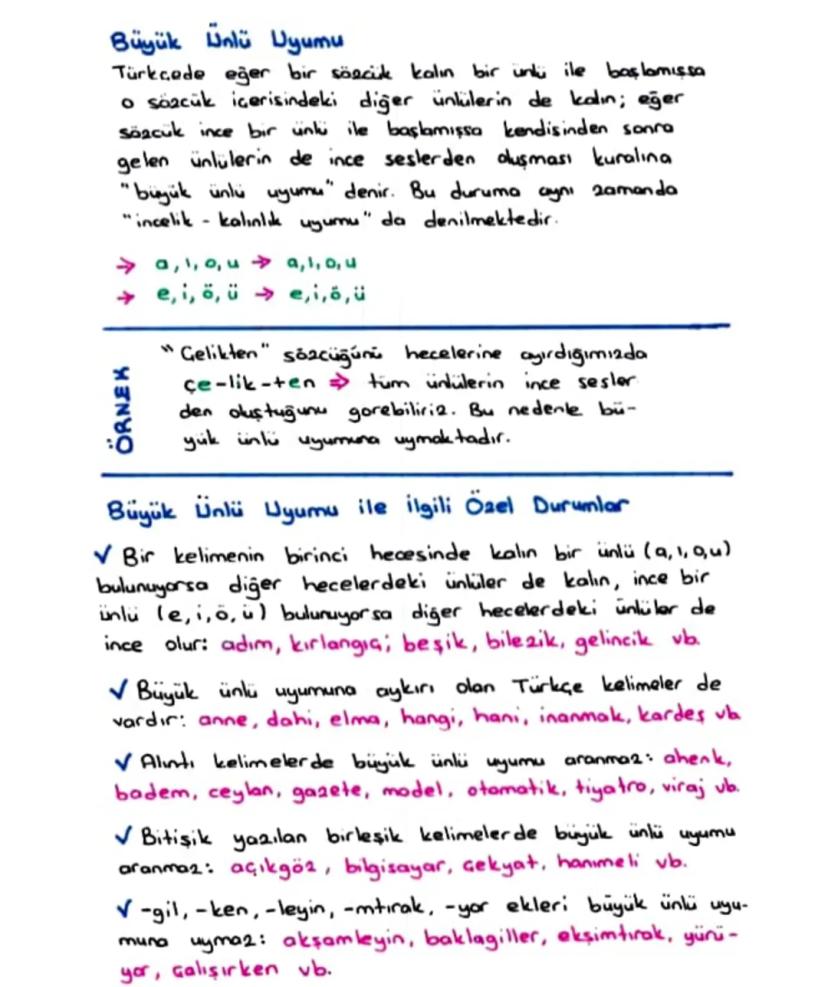 Büyük Ünlü Uyumu
Türkçede eğer bir sözcük kalın bir ünlü ile başlamışsa
o sözcük içerisindeki diğer ünlülerin de kalın; eğer
sözcük ince bir ünlü ile başlamışsa kendisinden sonra
gelen ünlülerin de ince seslerden oluşması kuralına
"büyük ünlü uyumu" denir. Bu duruma aynı zamanda
"incelik - kalınlık uyumu" da denilmektedir.
→ a, ı, o, u → a, ı, o, u
→ e, i, ö, ü → e, i, ö, ü
ÖRNEK
"Çelikten" sözcüğünü hecelerine ayırdığımızda
çe-lik-ten ⇒ tüm ünlülerin ince sesler
den oluştuğunu görebiliriz. Bu nedenle bü-
yük ünlü uyumuna uymaktadır.
Büyük Ünlü Uyumu ile ilgili Özel Durumlar
✓ Bir kelimenin birinci hecesinde kalın bir ünlü (a, ı, o, u)
bulunuyorsa diğer hecelerdeki ünlüler de kalın, ince bir
ünlü (e, i, ö, ü) bulunuyorsa diğer hecelerdeki ünlüler de
ince olur: adım, kırlangıç; beşik, bilezik, gelincik vb.
✓ Büyük ünlü uyumuna aykırı olan Türkçe kelimeler de
vardır: anne, dahi, elma, hangi, hani, inanmak, kardeş vb
✓ Alıntı kelimelerde büyük ünlü uyumu aranmaz: ahenk,
badem, ceylan, gazete, model, otomatik, tiyatro, viraj vb.
✓ Bitişik yazılan birleşik kelimelerde büyük ünlü uyumu
aranmaz: açıkgöz, bilgisayar, çekyat, hanımeli vb.
✓ -gil, -ken, -leyin, -mtırak, -yor ekleri büyük ünlü uyu-
muna uymaz: akşamleyin, baklagiller, ekşimtırak, yürü-
yor, çalışırken vb.